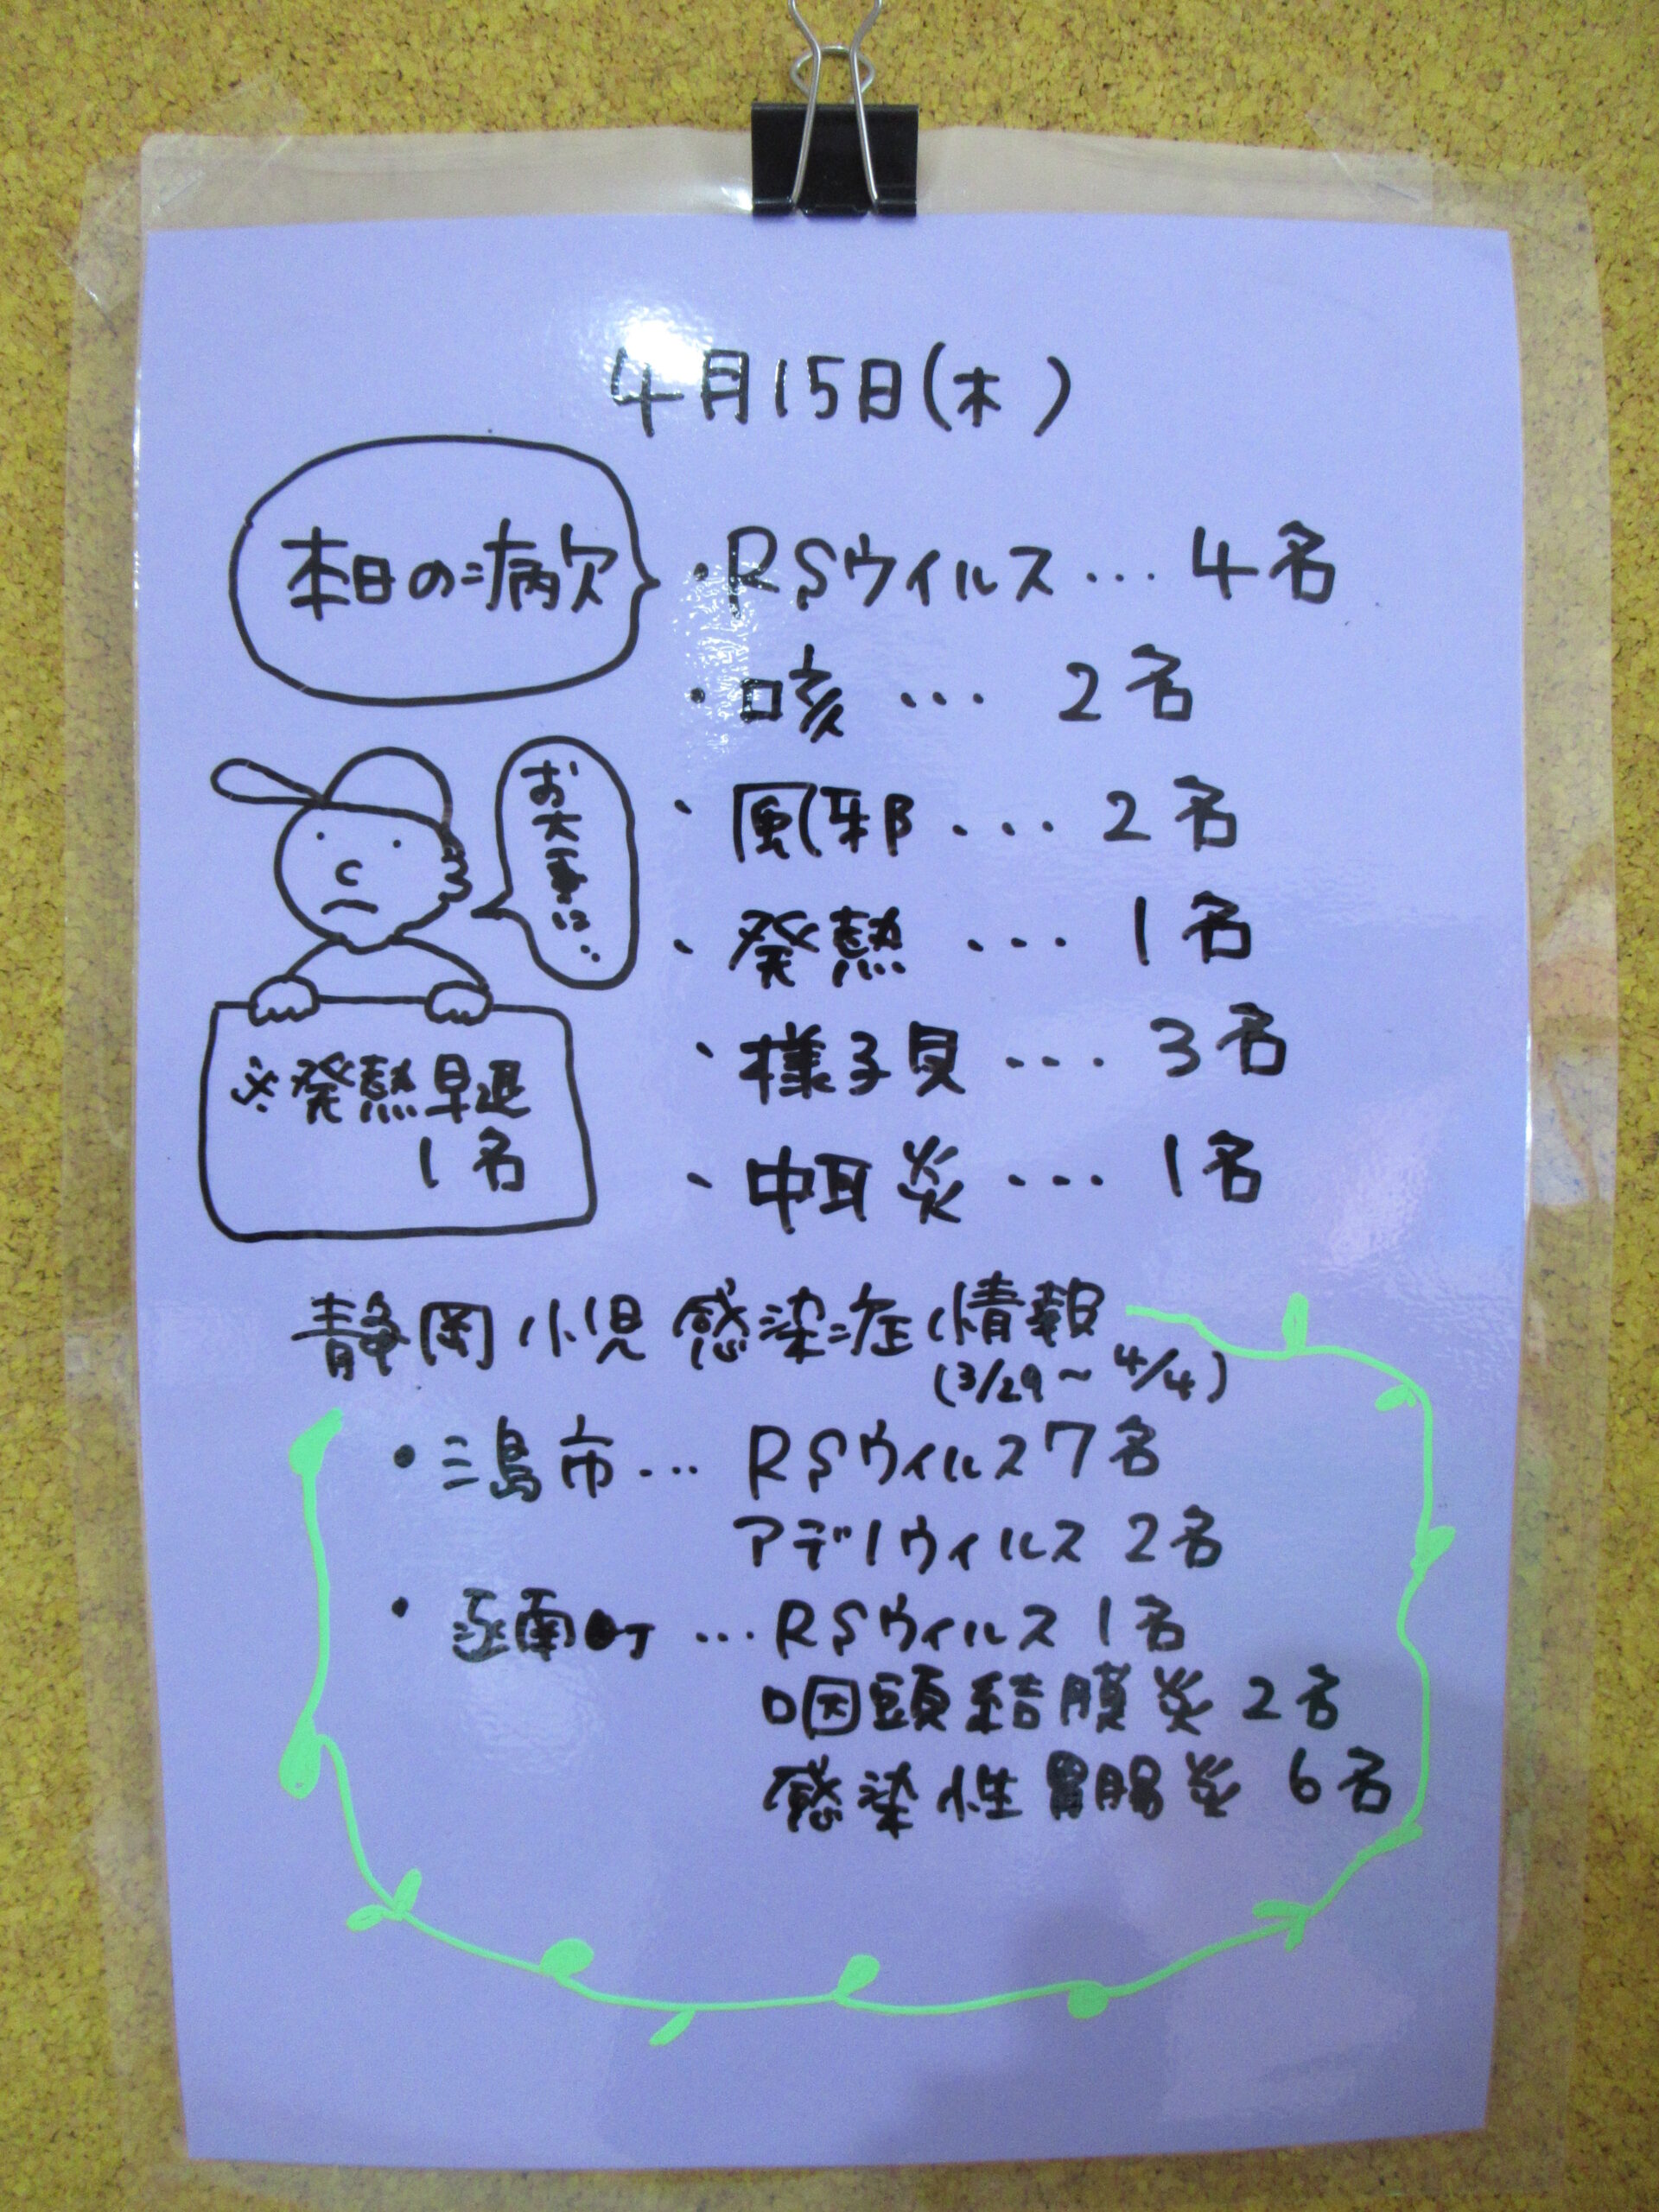 4月15日(木)
本日の病欠
・RSウイルス... 4名
・咳... 2名
・風邪... 2名
・発熱... 1名
・様子見... 3名
・中耳炎... 1名
お大事に..
※発熱早退
1名
静岡小児感染症情報
(3/29~4/4)
・三島市... RSウィルス7名
アデノウィルス 2名
・函南町... RSウィルス 1名
咽頭結膜炎 2名
感染性胃腸炎 6名